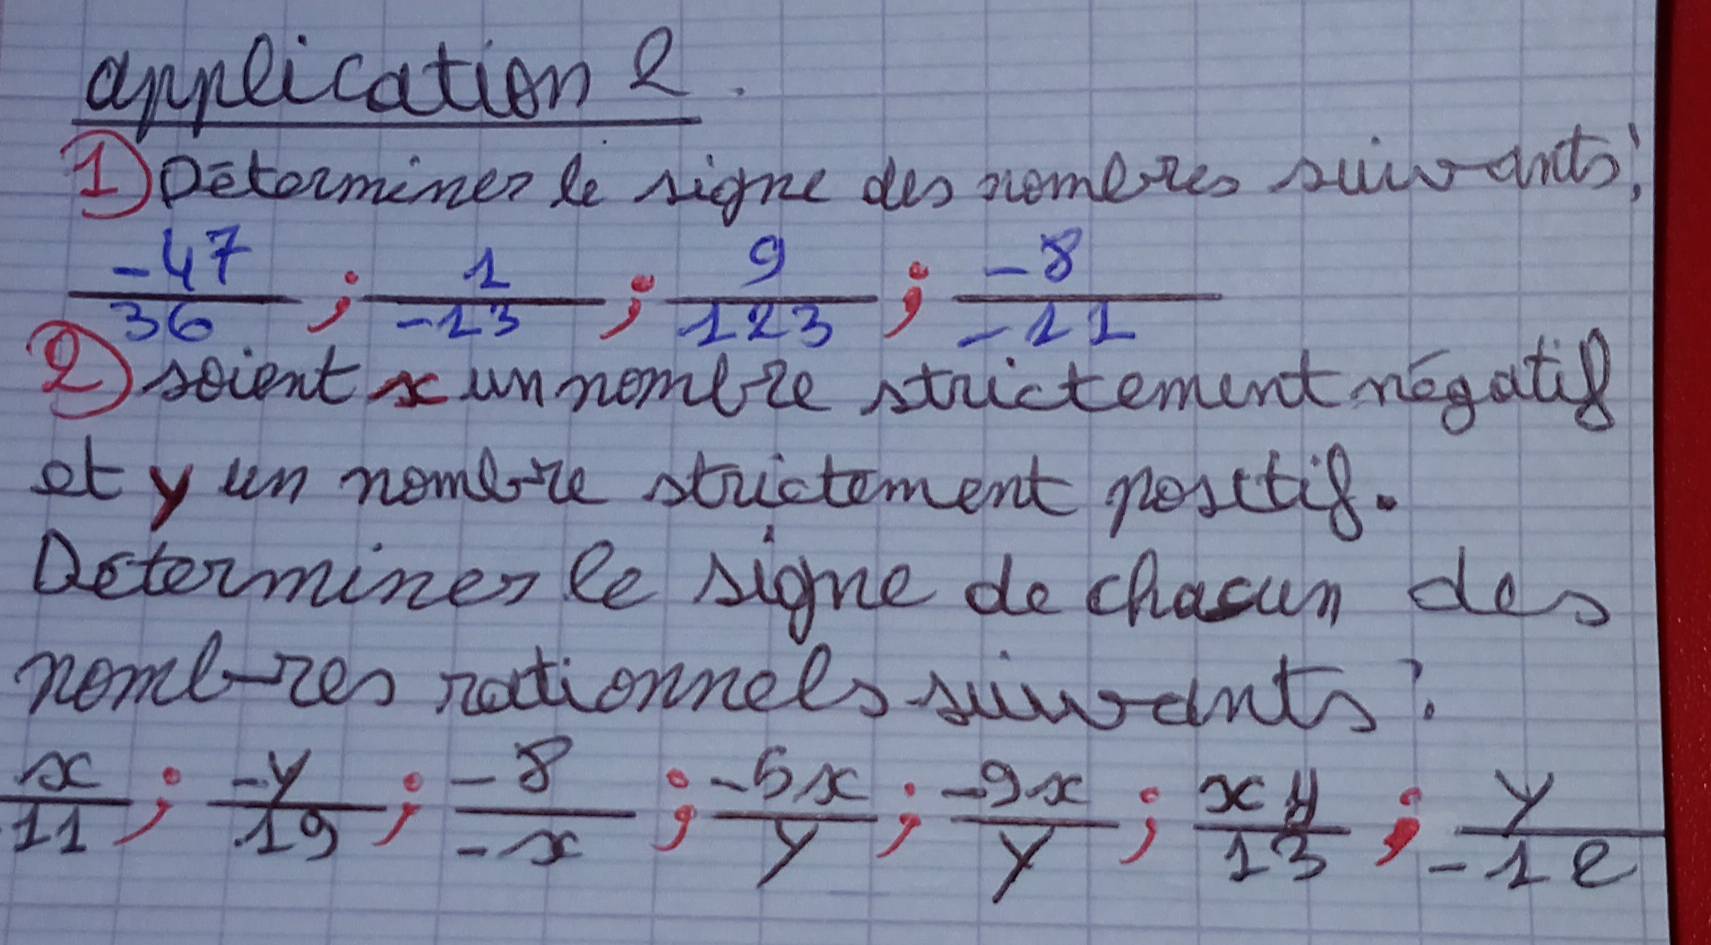 application 2.
1) Déterminer le signe des nombres suivants:
-47/36 ; 1/-13 ; 9/123 ; -8/-11
2) soient x un nombre strictement négatif
et y un nombre strictement positif.
Déterminer le signe de chacun des
nombres rationnels suivants:
x/11 ; -y/19 ; -8/-x ; -5x/y ; -9x/y ; xy/13 ; y/-12